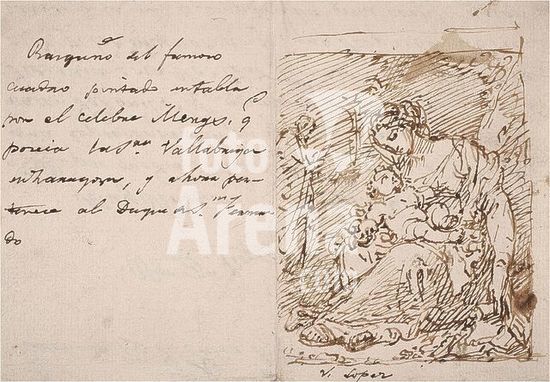 Rasguño del famoso
cuadro pintado en tabla
por el celebre Mengs, q
poseia la Sra Vallabriga
en Zaragoza, y ahora per-
tenece al Duque de Sn Ferna-
do
V. Lopez
foto
Arena
.com